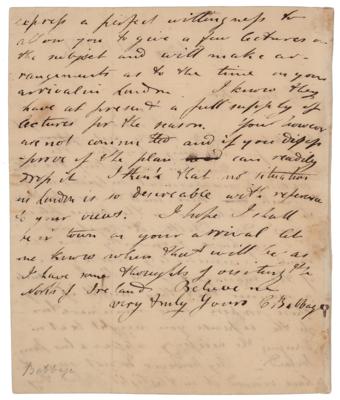 express a perfect willingness to
allow you to give a few lectures on
the subject and will make ar-
rangements as to the time on your
arrival in London. I know they
have at present a full supply of
lectures for the season. You however
are not committed and if you disap-
prove of the plan can readily
drop it. I think that no situation
in London is so desireable with reference
to your views. I hope I shall
be in town on your arrival let
me know when that will be as
I have some thoughts of visiting the
North of Ireland. Believe me
very truly Yours C Babbage
Babbage